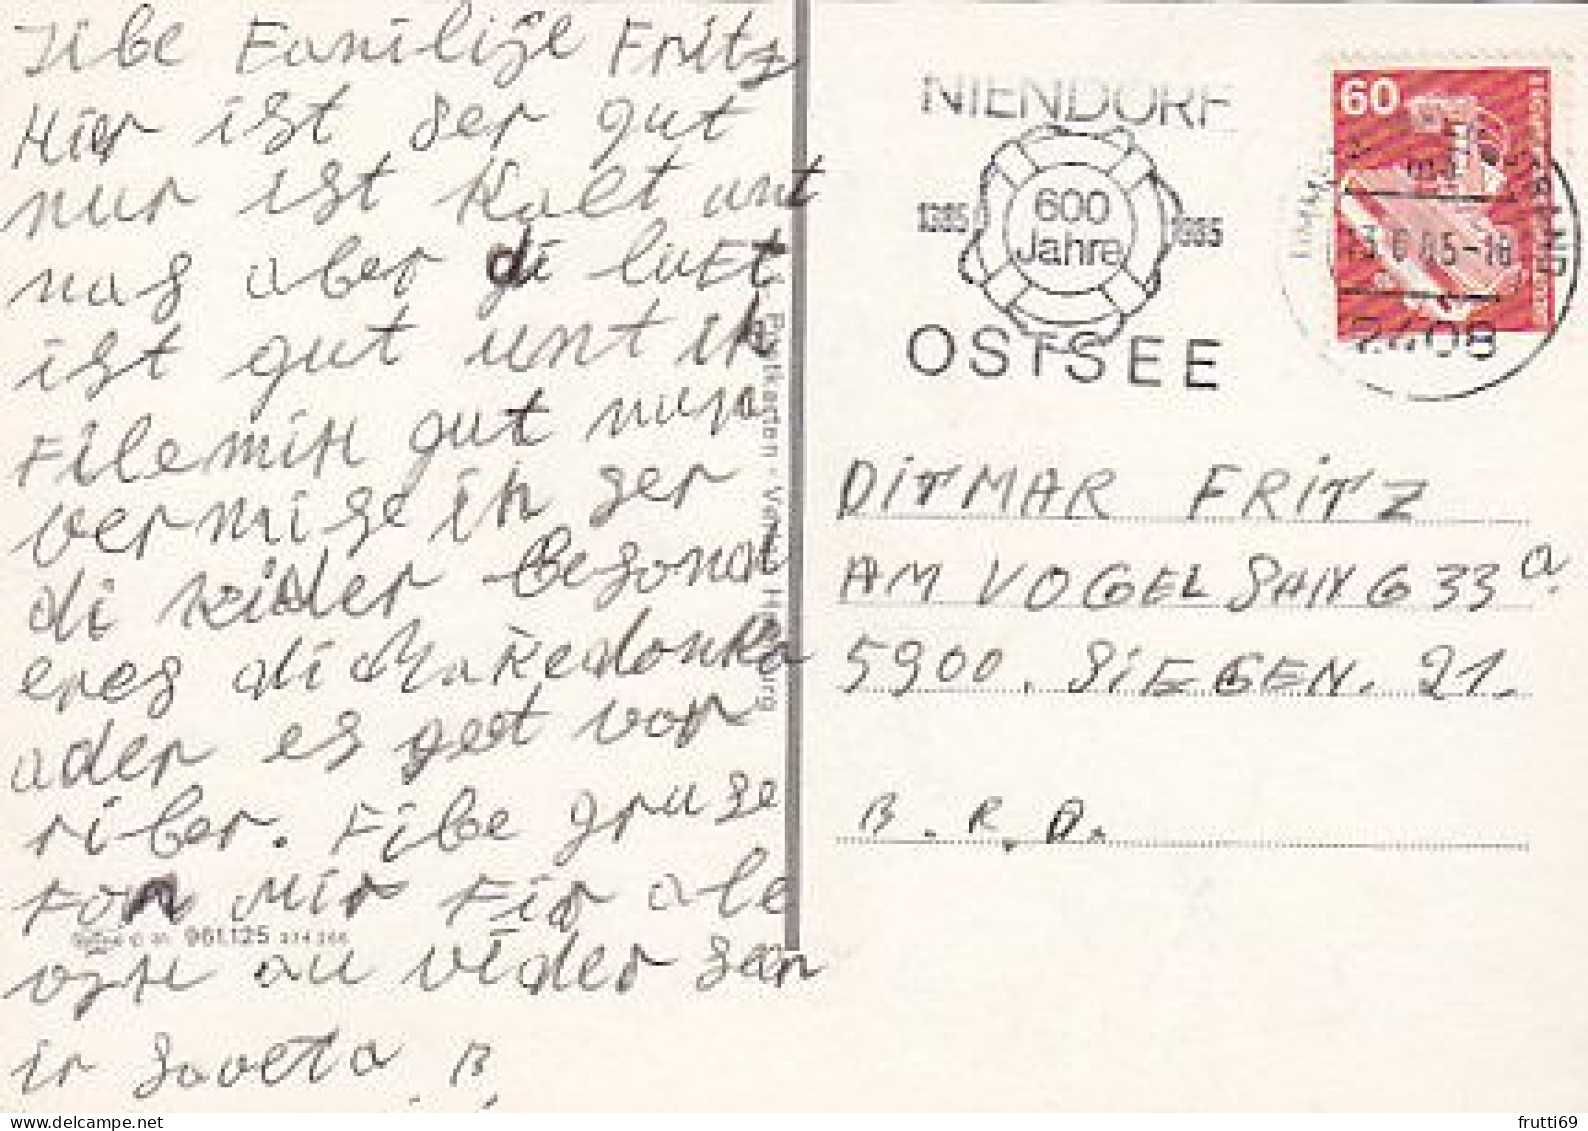 libe Familije Fritz
Hier ist ser gut
nur ist Kalt unt
nas aber di luft
ist gut unt ih
File mih gut nur
vermise ih ser
di kider besond
eres di Makedonka
ader es get vor
riber. File gruse
Fon mir Fir ale
auf vidersen
ir Saveta B.
961.125
Postkarten - Verlag Hamburg
NIENDORF
1385
600
Jahre
1985
OSTSEE
60
13.6.85-18
2408
DITMAR FRITZ
AM VOGELSANG 33 a
5900. SIEGEN. 21.
B. R. D.
frutti69